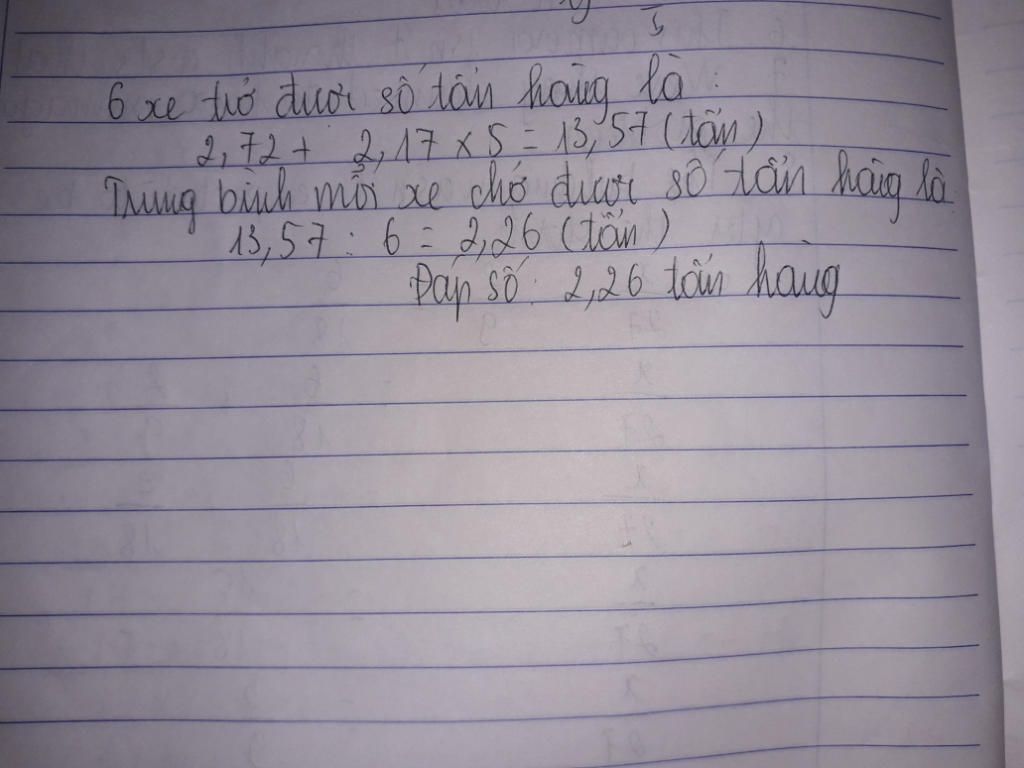 6 xe trở được số tấn hàng là:
2,72 + 2,17 x 5 = 13,57 (tấn)
Trung bình mỗi xe chở được số tấn hàng là
13,57 : 6 = 2,26 (tấn)
Đáp số: 2,26 tấn hàng